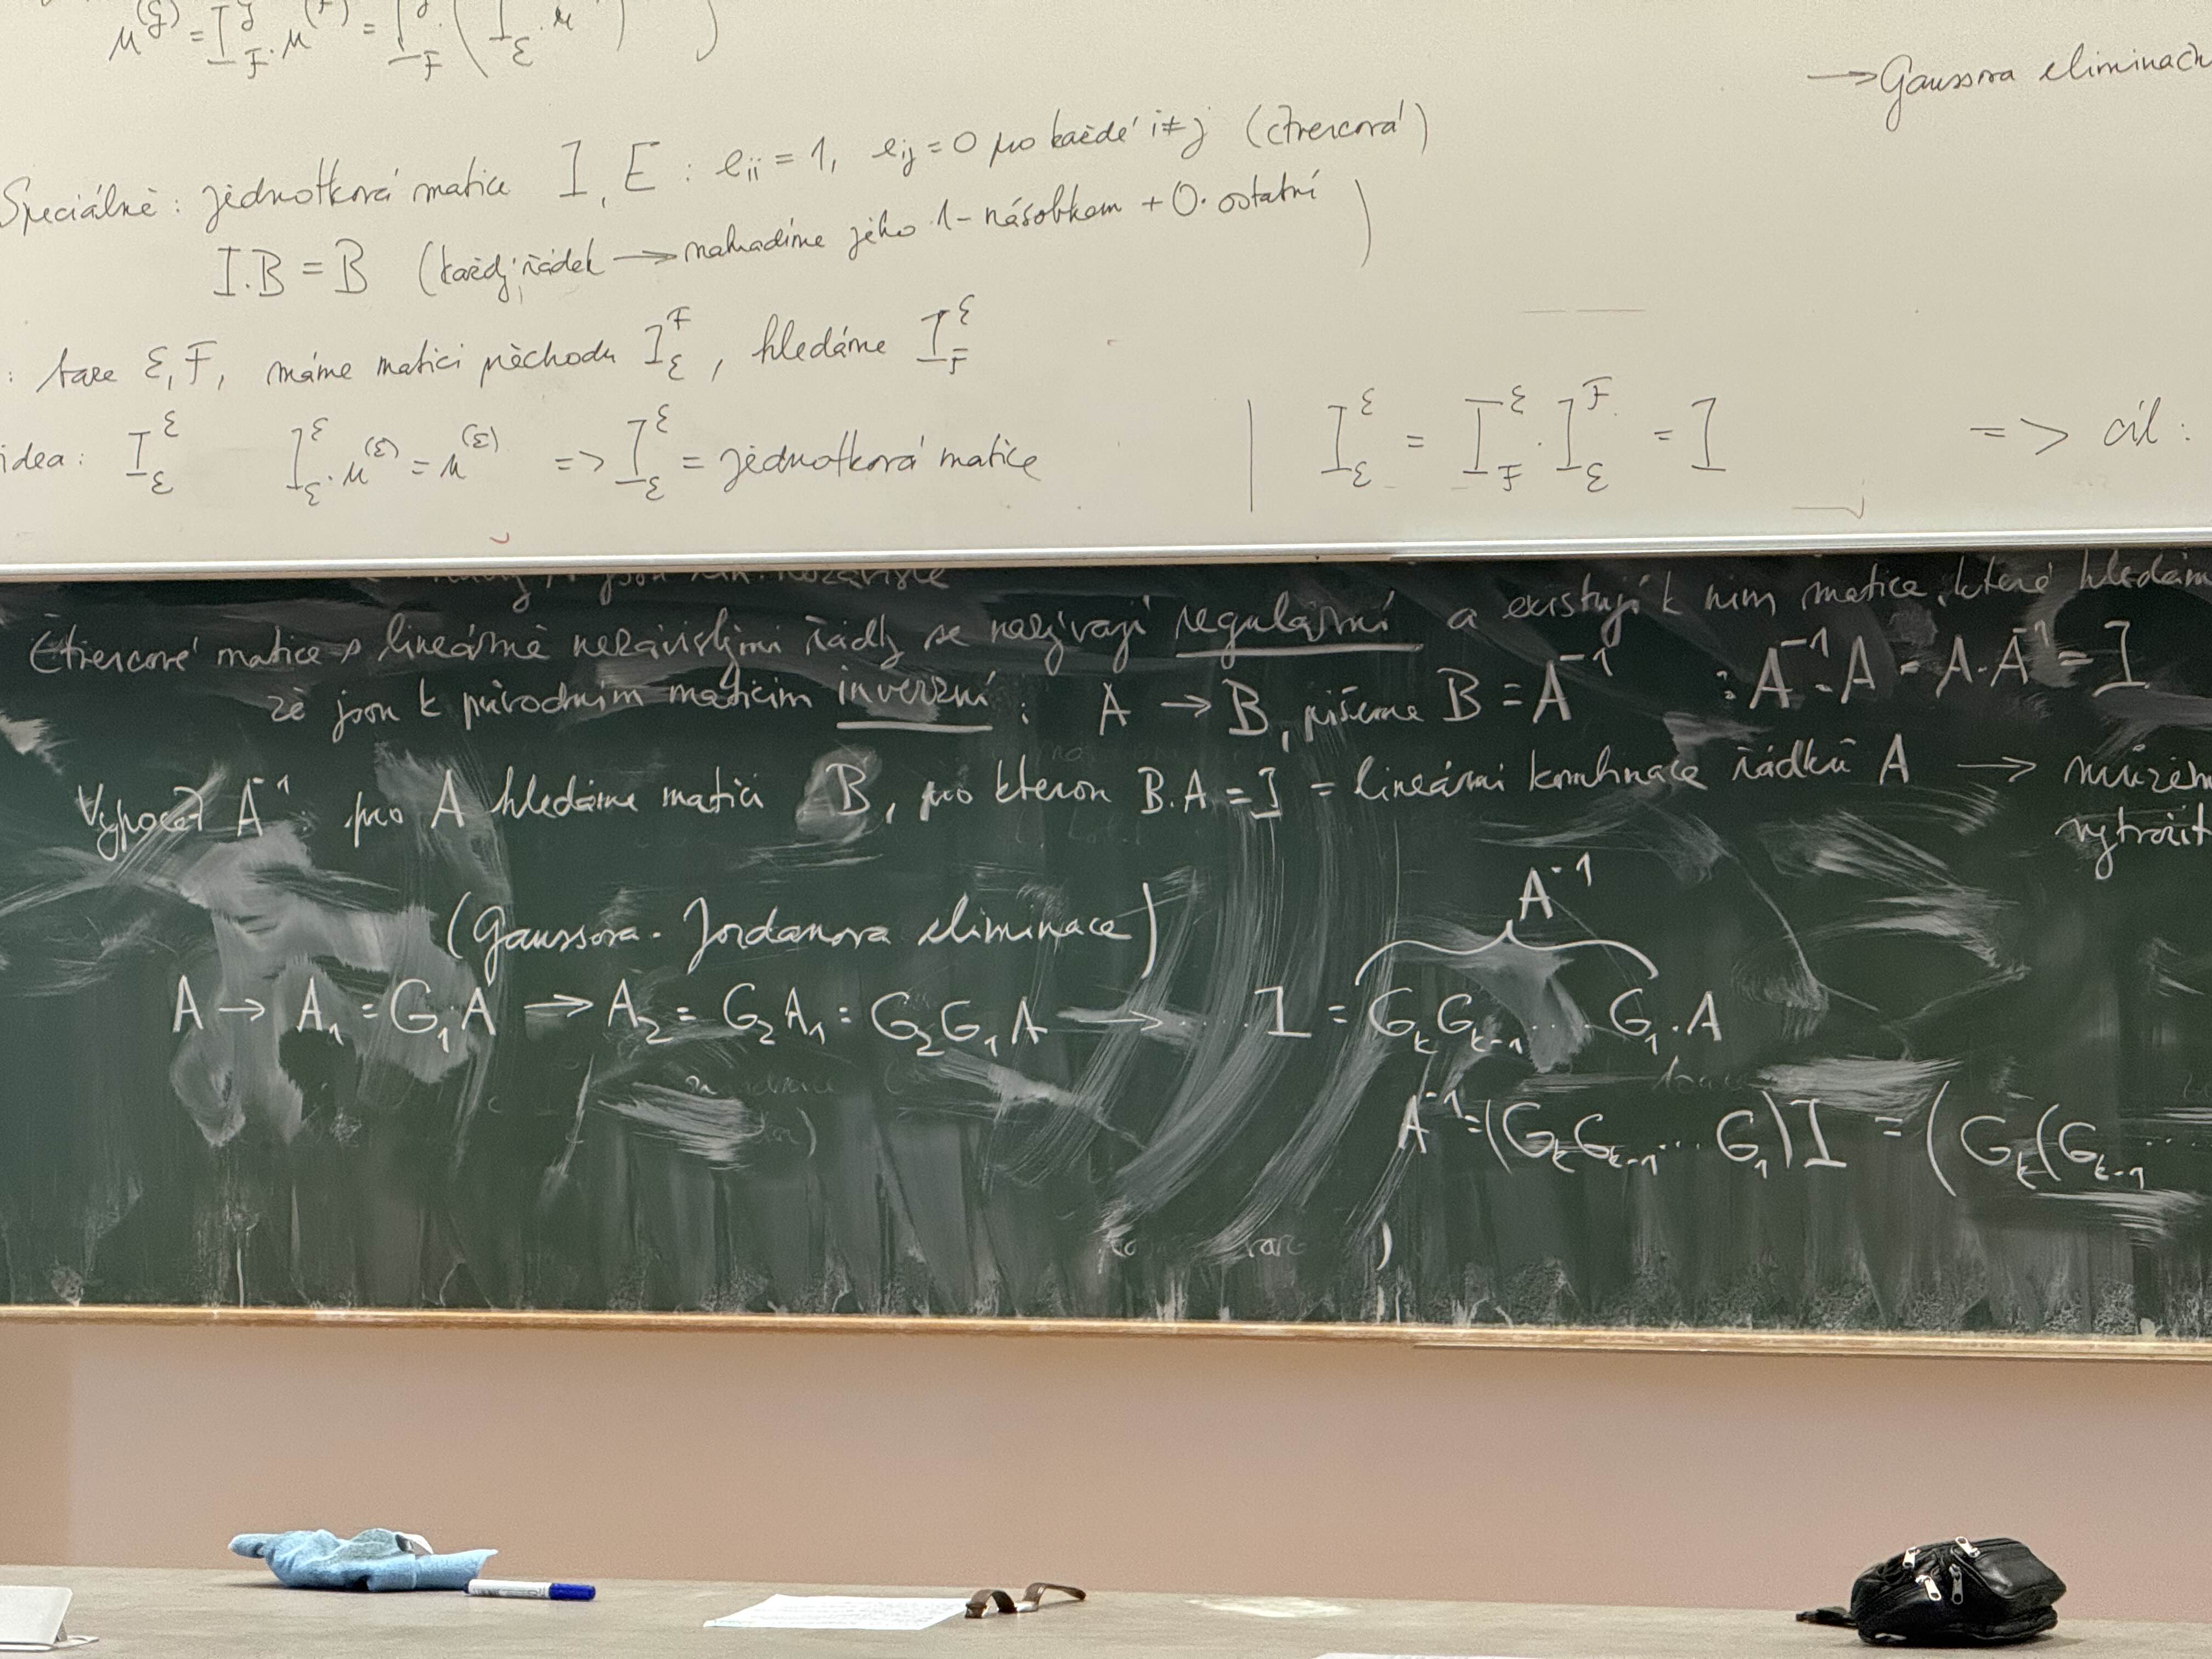 u^(G) = I_F^G · u^(F) = I_F^G · ( I_ε · u )
→ Gaussova eliminach
Speciálně: jednotková matice I, E : e_ii = 1, e_ij = 0 pro každé i ≠ j (čtvercová)
I.B = B (každý řádek → nahradíme jeho 1-násobkem + 0· ostatní)
: báze ε, F, máme matici přechodu I_ε^F, hledáme I_F^ε
idea: I_ε^ε I_ε^ε · u^(ε) = u^(ε) => I_ε^ε = jednotková matice | I_ε^ε = I_F^ε · I_ε^F = I => cíl:
jsou lin. nezávislé
Čtvercové matice s lineárně nezávislými řádky se nazývají regulární a existují k nim matice, které hledám
že jsou k původním maticím inverzní : A → B, píšeme B = A^-1 : A^-1 · A = A · A^-1 = I
Výpočet A^-1 : pro A hledáme matici B, pro kterou B.A = I = lineární kombinace řádků A → můžem
vytvořit
(Gaussova - Jordanova eliminace) A^-1
A → A_1 = G_1 A → A_2 = G_2 A_1 = G_2 G_1 A → .... I = G_k G_k-1 .... G_1 . A
A^-1 = (G_k G_k-1 ... G_1) I = (G_k (G_k-1 ...